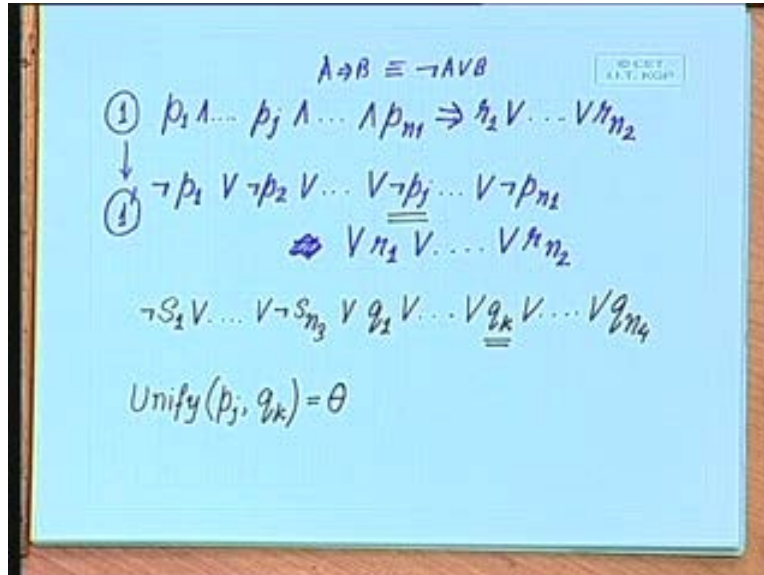 A⇒B ≡ ¬A∨B
© CET
I.I.T. KGP
① p₁ ∧.... pⱼ ∧... ∧pₙ₁ ⇒ r₁ ∨.... ∨rₙ₂
↓
①' ¬p₁ ∨ ¬p₂ ∨... ∨¬pⱼ... ∨¬pₙ₁
∨ r₁ ∨..... ∨ rₙ₂
¬S₁ ∨.... ∨¬Sₙ₃ ∨ q₁ ∨... ∨qₖ ∨.... ∨qₙ₄
Unify(pⱼ, qₖ) = θ